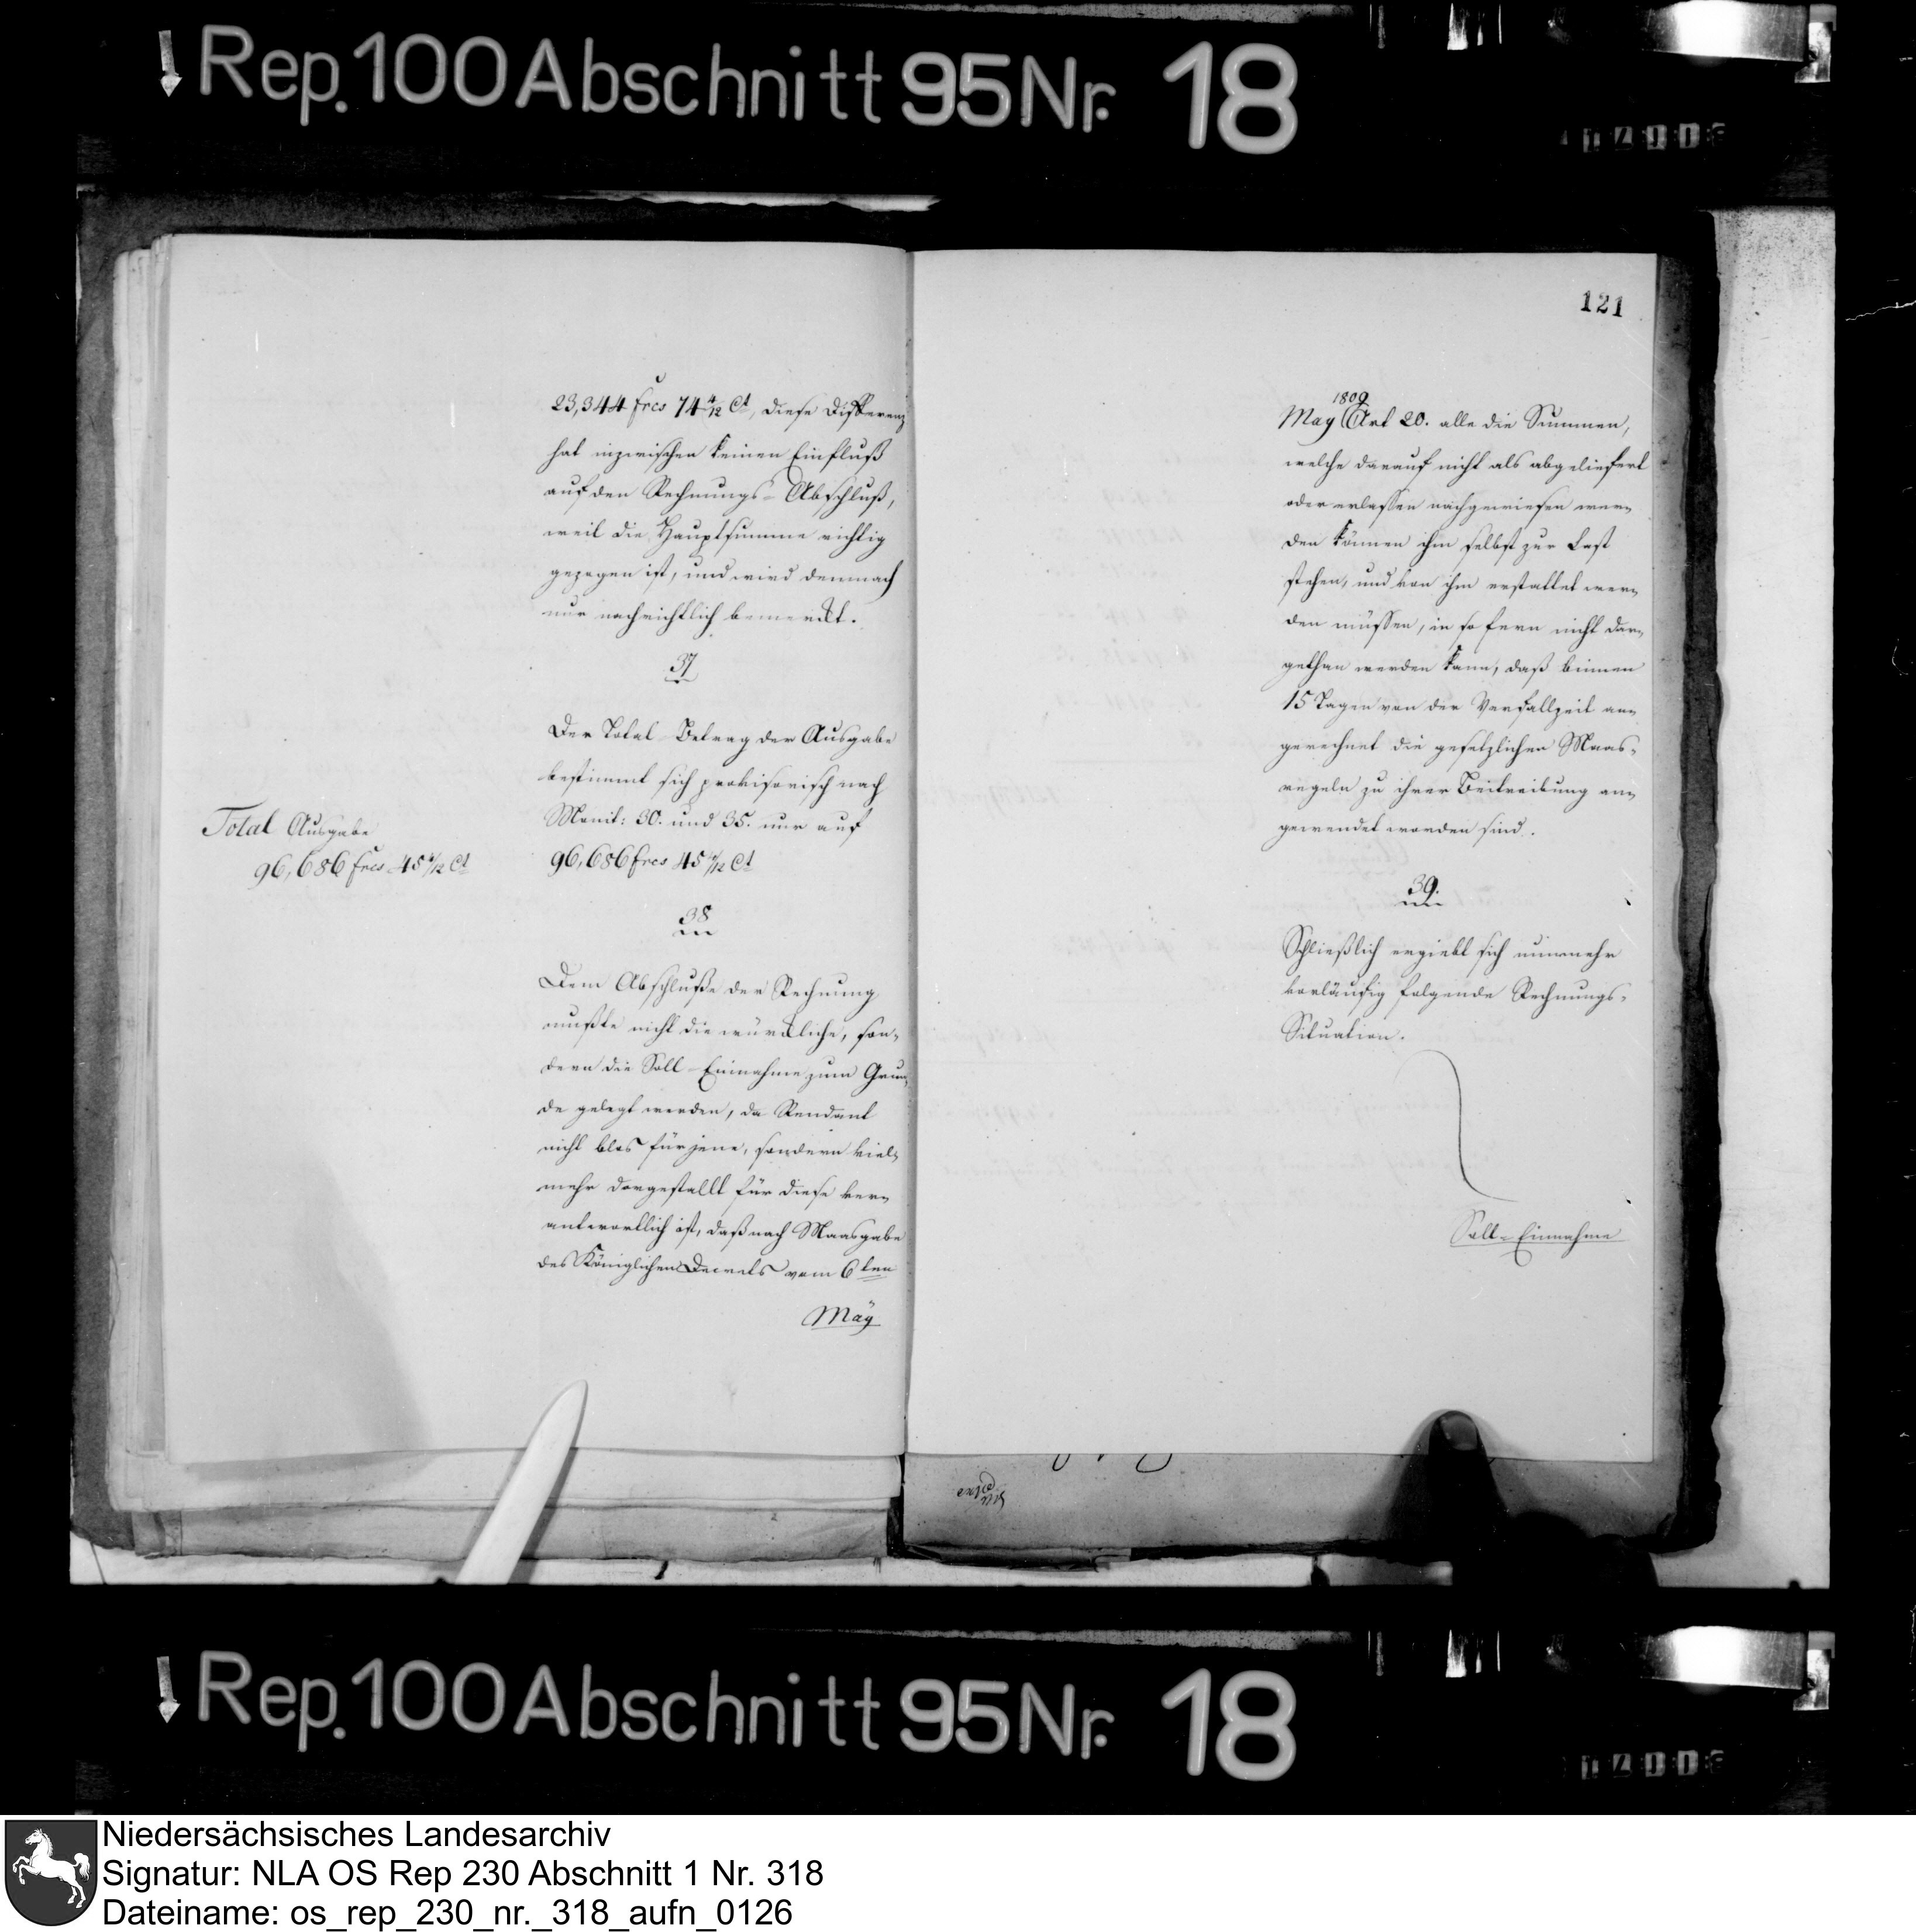 Rep. 100 Abschnitt 95 Nr. 18
23,344 frcs 74 4/12 Ct, diese Differenz
hat inzwischen keinen Einfluß
auf den Rechnungs-Abschluß,
weil die Hauptsumme richtig
gezogen ist, und wird demnach
nur nachrichtlich bemerkt.
37
Der Total-Betrag der Ausgabe
bestimmt sich provisorisch nach
Monit: 30. und 35. nur auf
96,686 frcs 45 4/12 Ct
Total Ausgabe
96,686 frcs 45 4/12 Ct
38
Dem Abschluße der Rechnung
mußte nicht die würkliche, son-
dern die Soll-Einnahme zum Grun-
de gelegt werden, da Rendant
nicht blos für jene, sondern viel-
mehr dergestallt für diese ver-
antwortlich ist, daß nach Maasgabe
des Königlichen Decrets vom 6ten
Maÿ
121
1809
May Art 20. alle die Summen,
welche darauf nicht als abgeliefert
oder erlassen nachgewiesen wer-
den können ihm selbst zur Last
stehen, und von ihm erstattet wer-
den müssen, in so fern nicht dar-
gethan werden kann, daß binnen
15 Tagen von der Verfallzeit an-
gerechnet die gesetzlichen Maas-
regeln zu ihrer Beitreibung an-
gewendet worden sind.
39.
Schließlich ergiebt sich nunmehr
vorläufig folgende Rechnungs-
Situation.
Soll-Einnahme
Rep. 100 Abschnitt 95 Nr. 18
Niedersächsisches Landesarchiv
Signatur: NLA OS Rep 230 Abschnitt 1 Nr. 318
Dateiname: os_rep_230_nr._318_aufn_0126